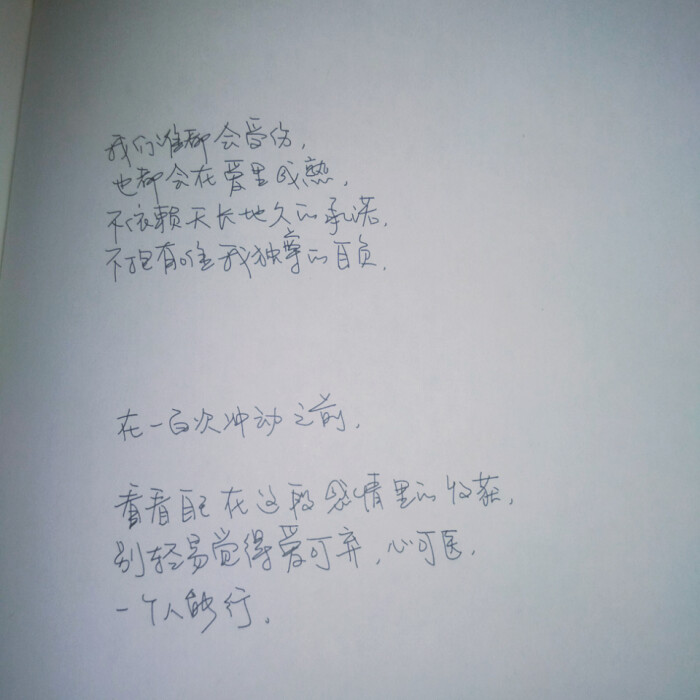 我们谁都会受伤，
也都会在爱里成熟，
不依赖天长地久的承诺，
不抱有唯我独尊的自负，
在一百次冲动之前，
看看自己在这段感情里的收获，
别轻易觉得爱可弃，心可医，
一个人能行。